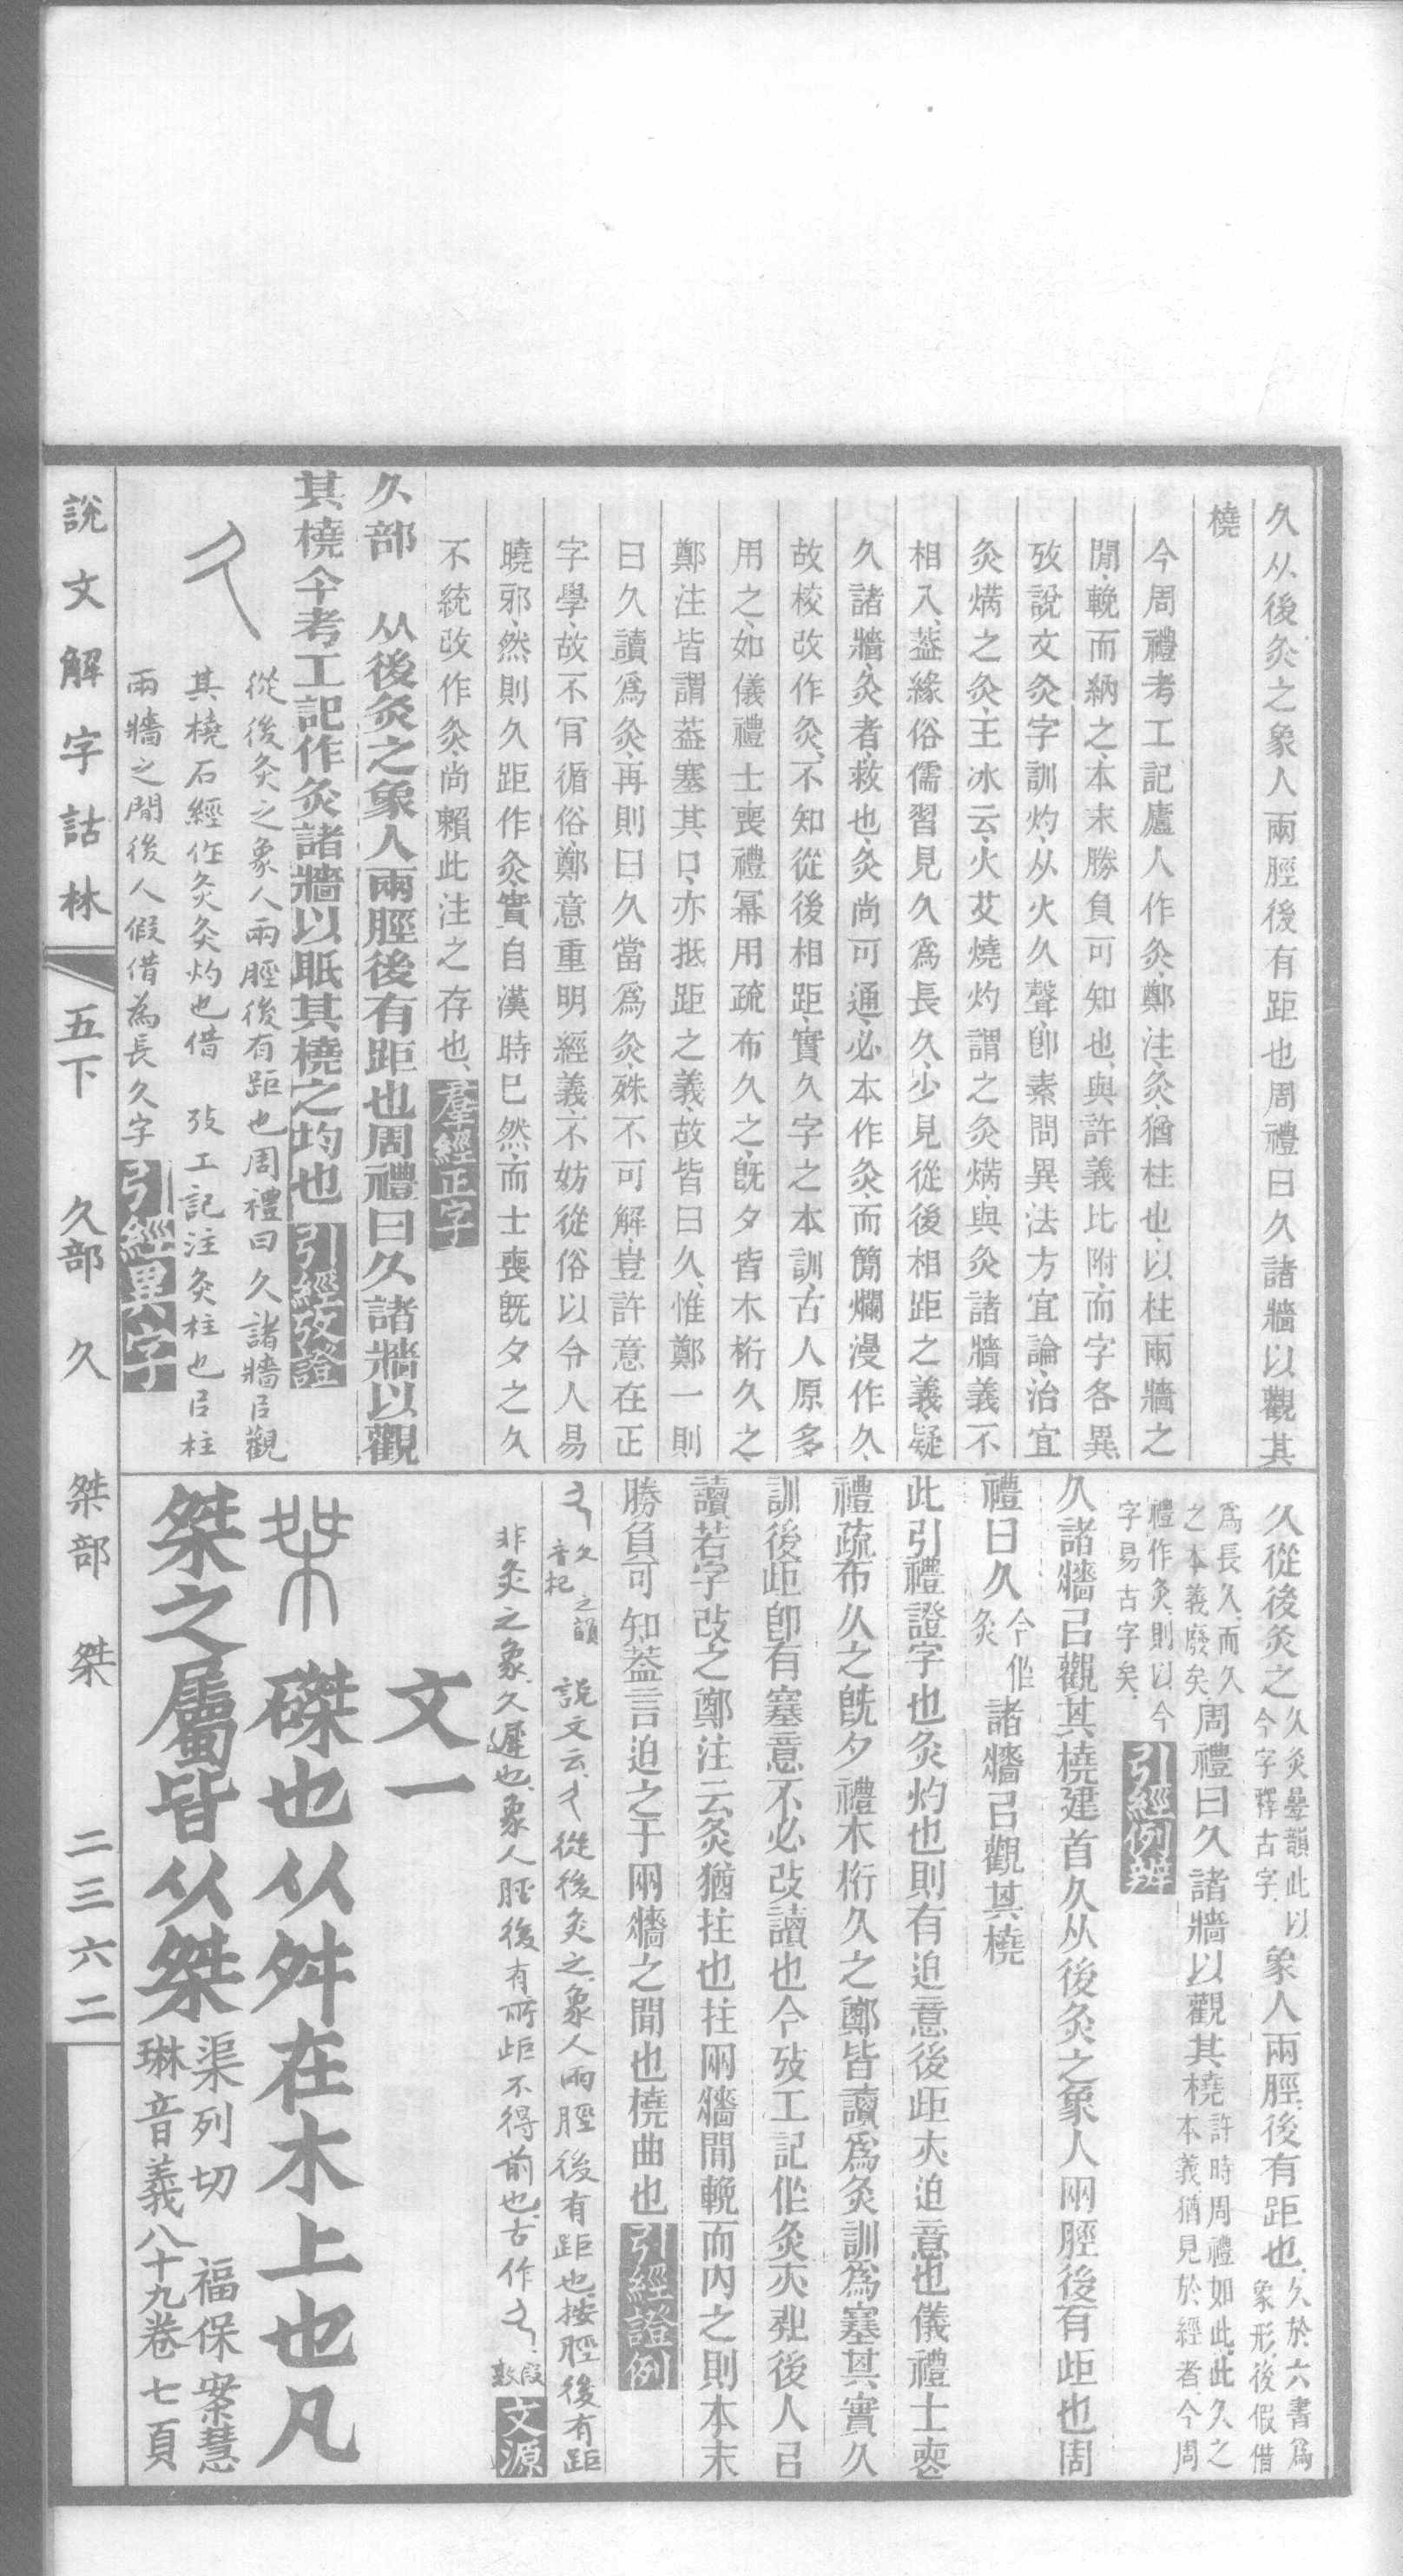 久从後灸之象人兩脛後有距也周禮曰久諸牆以觀其
橈
今周禮考工記廬人作灸、鄭注、灸、猶柱也、以柱兩牆之
閒、輓而納之、本末勝負可知也、與許義比附、而字各異
攷說文灸字訓灼、从火久聲、卽素問異法方宜論、治宜
灸焫之灸、王冰云、火艾燒灼謂之灸焫、與灸諸牆義不
相入、葢緣俗儒習見久爲長久、少見從後相距之義、疑
久諸牆、灸者、救也、灸尚可通、必本作灸、而簡爛漫作久、
故校改作灸、不知從後相距、實久字之本訓、古人原多
用之、如儀禮士喪禮冪用疏布久之、旣夕皆木桁久之、
鄭注皆謂葢塞其口、亦抵距之義、故皆曰久、惟鄭一則
曰久讀爲灸、再則曰久當爲灸、殊不可解、豈許意在正
字學、故不肎循俗、鄭意重明經義、不妨從俗以令人易
曉邪、然則久距作灸、實自漢時巳然、而士喪旣夕之久
不統改作灸、尚賴此注之存也、羣經正字
久部 从後灸之象人兩脛後有距也周禮曰久諸牆以觀
其橈今考工記作灸諸牆以眂其橈之均也引經攷證
久
從後灸之象人兩脛後有距也周禮曰久諸牆㠯觀
其橈石經作灸灸灼也借 攷工記注灸柱也㠯柱
兩牆之閒後人假借為長久字引經異字
久從後灸之久灸疊韻此以今字釋古字象人兩脛後有距也、久於六書爲象形、後假借
爲長久、而久之本義廢矣、周禮曰久諸牆以觀其橈許時周禮如此、此久之本義、猶見於經者、今周
禮作灸、則以今字易古字矣、引經例辨
久諸牆㠯觀其橈建首久从後灸之象人兩脛後有歫也周
禮曰久今作灸諸牆㠯觀其橈
此引禮證字也灸灼也則有迫意後歫亦迫意也儀禮士喪
禮疏布久之旣夕禮木桁久之鄭皆讀爲灸訓爲塞其實久
訓後歫卽有塞意不必改讀也今攷工記作灸亦後人㠯
讀若字改之鄭注云灸猶拄也拄兩牆閒輓而内之則本末
勝負可知葢言迫之于兩牆之閒也橈曲也引經證例
久久音杞之韻 說文云、久從後灸之、象人兩脛後有距也、按脛後有距
非灸之象、久遲也、象人脛後有所歫不得前也、古作久、段敦文源
文一
桀 磔也从舛在木上也凡
桀之屬皆从桀渠列切 福保案慧琳音義八十九卷七頁
說文解字詁林 五下 久部 久 桀部 桀 二三六二